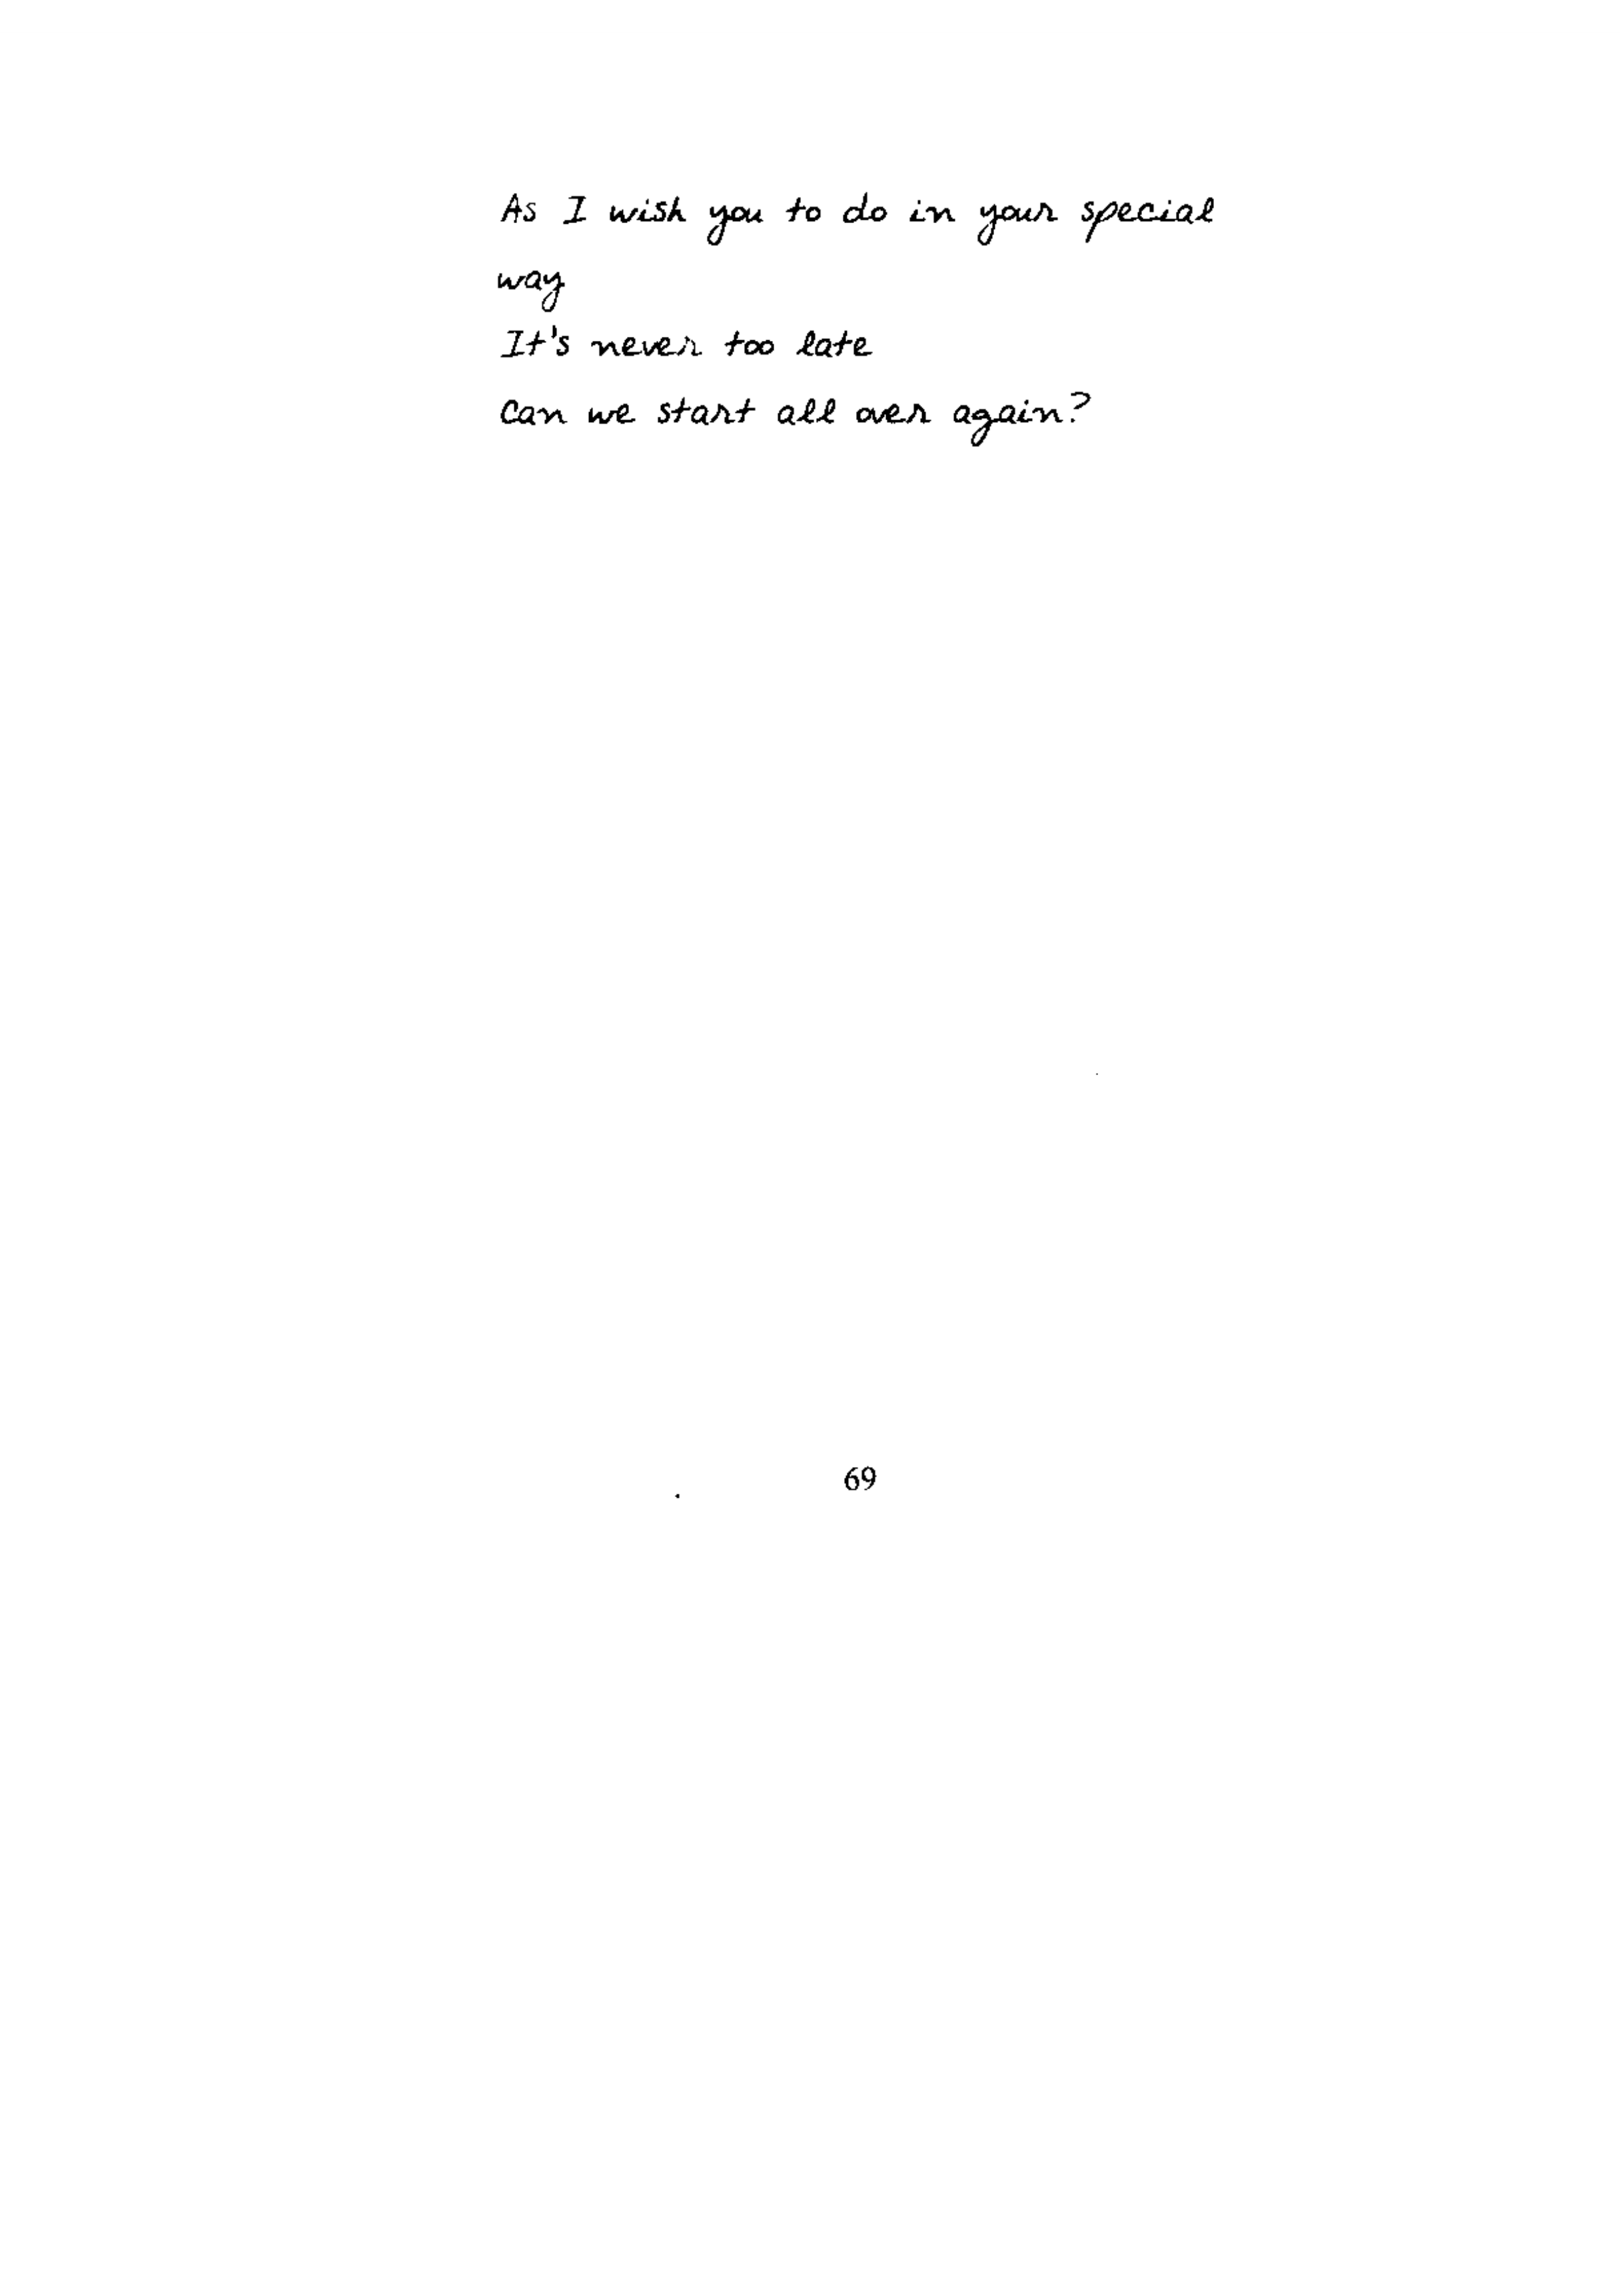 As I wish you to do in your special
way
It's never too late
Can we start all over again?
69